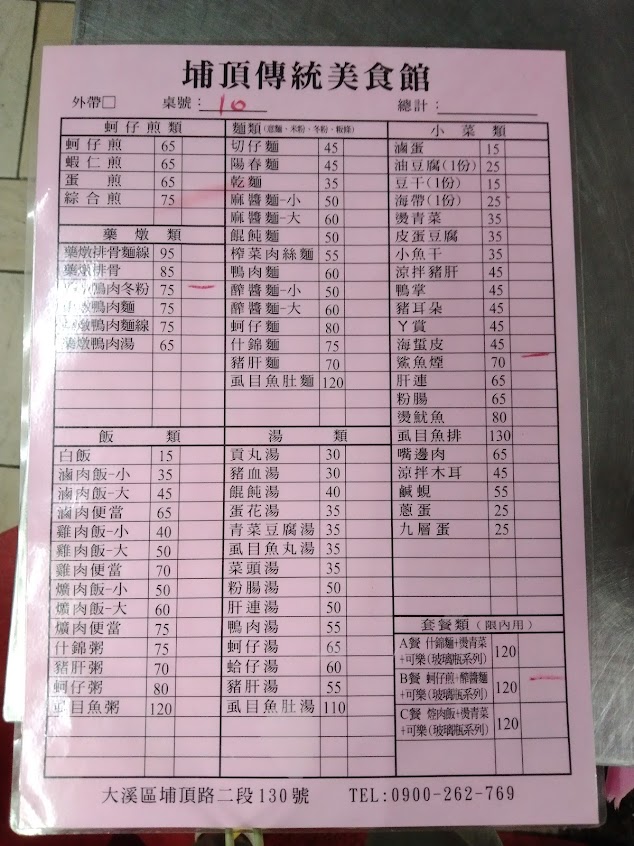 埔頂傳統美食館
外帶□ 桌號：10 總計：
蚵仔煎類
蚵仔煎 65
蝦仁煎 65
蛋煎 65
綜合煎 75
藥燉類
藥燉排骨麵線 95
藥燉排骨 85
鴨肉冬粉 75
鴨肉麵 75
燉鴨肉麵線 75
燉鴨肉湯 65
飯類
白飯 15
滷肉飯-小 35
滷肉飯-大 45
滷肉便當 65
雞肉飯-小 40
雞肉飯-大 50
雞肉便當 70
爌肉飯-小 50
爌肉飯-大 60
爌肉便當 75
什錦粥 65
豬肝粥 70
蚵仔粥 80
虱目魚粥 120
麵類(意麵、米粉、冬粉、粄條)
切仔麵 45
陽春麵 45
乾麵 35
麻醬麵-小 50
麻醬麵-大 60
餛飩麵 50
榨菜肉絲麵 55
鴨肉麵 60
醡醬麵-小 50
醡醬麵-大 60
蚵仔麵 80
什錦麵 75
豬肝麵 70
虱目魚肚麵 120
湯類
貢丸湯 30
豬血湯 30
餛飩湯 40
蛋花湯 35
青菜豆腐湯 35
虱目魚丸湯 35
菜頭湯 35
粉腸湯 50
肝連湯 50
鴨肉湯 55
蚵仔湯 65
蛤仔湯 60
豬肝湯 55
虱目魚肚湯 110
小菜類
滷蛋 15
油豆腐(1份) 25
豆干(1份) 15
海帶(1份) 25
燙青菜 35
皮蛋豆腐 35
小魚干 35
涼拌豬肝 45
鴨掌 45
豬耳朵 45
ㄚ賞 45
海蜇皮 45
鯊魚煙 70
肝連 65
粉腸 65
燙魷魚 80
虱目魚排 130
嘴邊肉 65
涼拌木耳 45
鹹蜆 55
蔥蛋 25
九層蛋 25
套餐類(限內用)
A餐 什錦麵+燙青菜
+可樂(玻璃瓶系列) 120
B餐 蚵仔煎+醡醬麵
+可樂(玻璃瓶系列) 120
C餐 爌肉飯+燙青菜
+可樂(玻璃瓶系列) 120
大溪區埔頂路二段130號 TEL:0900-262-769